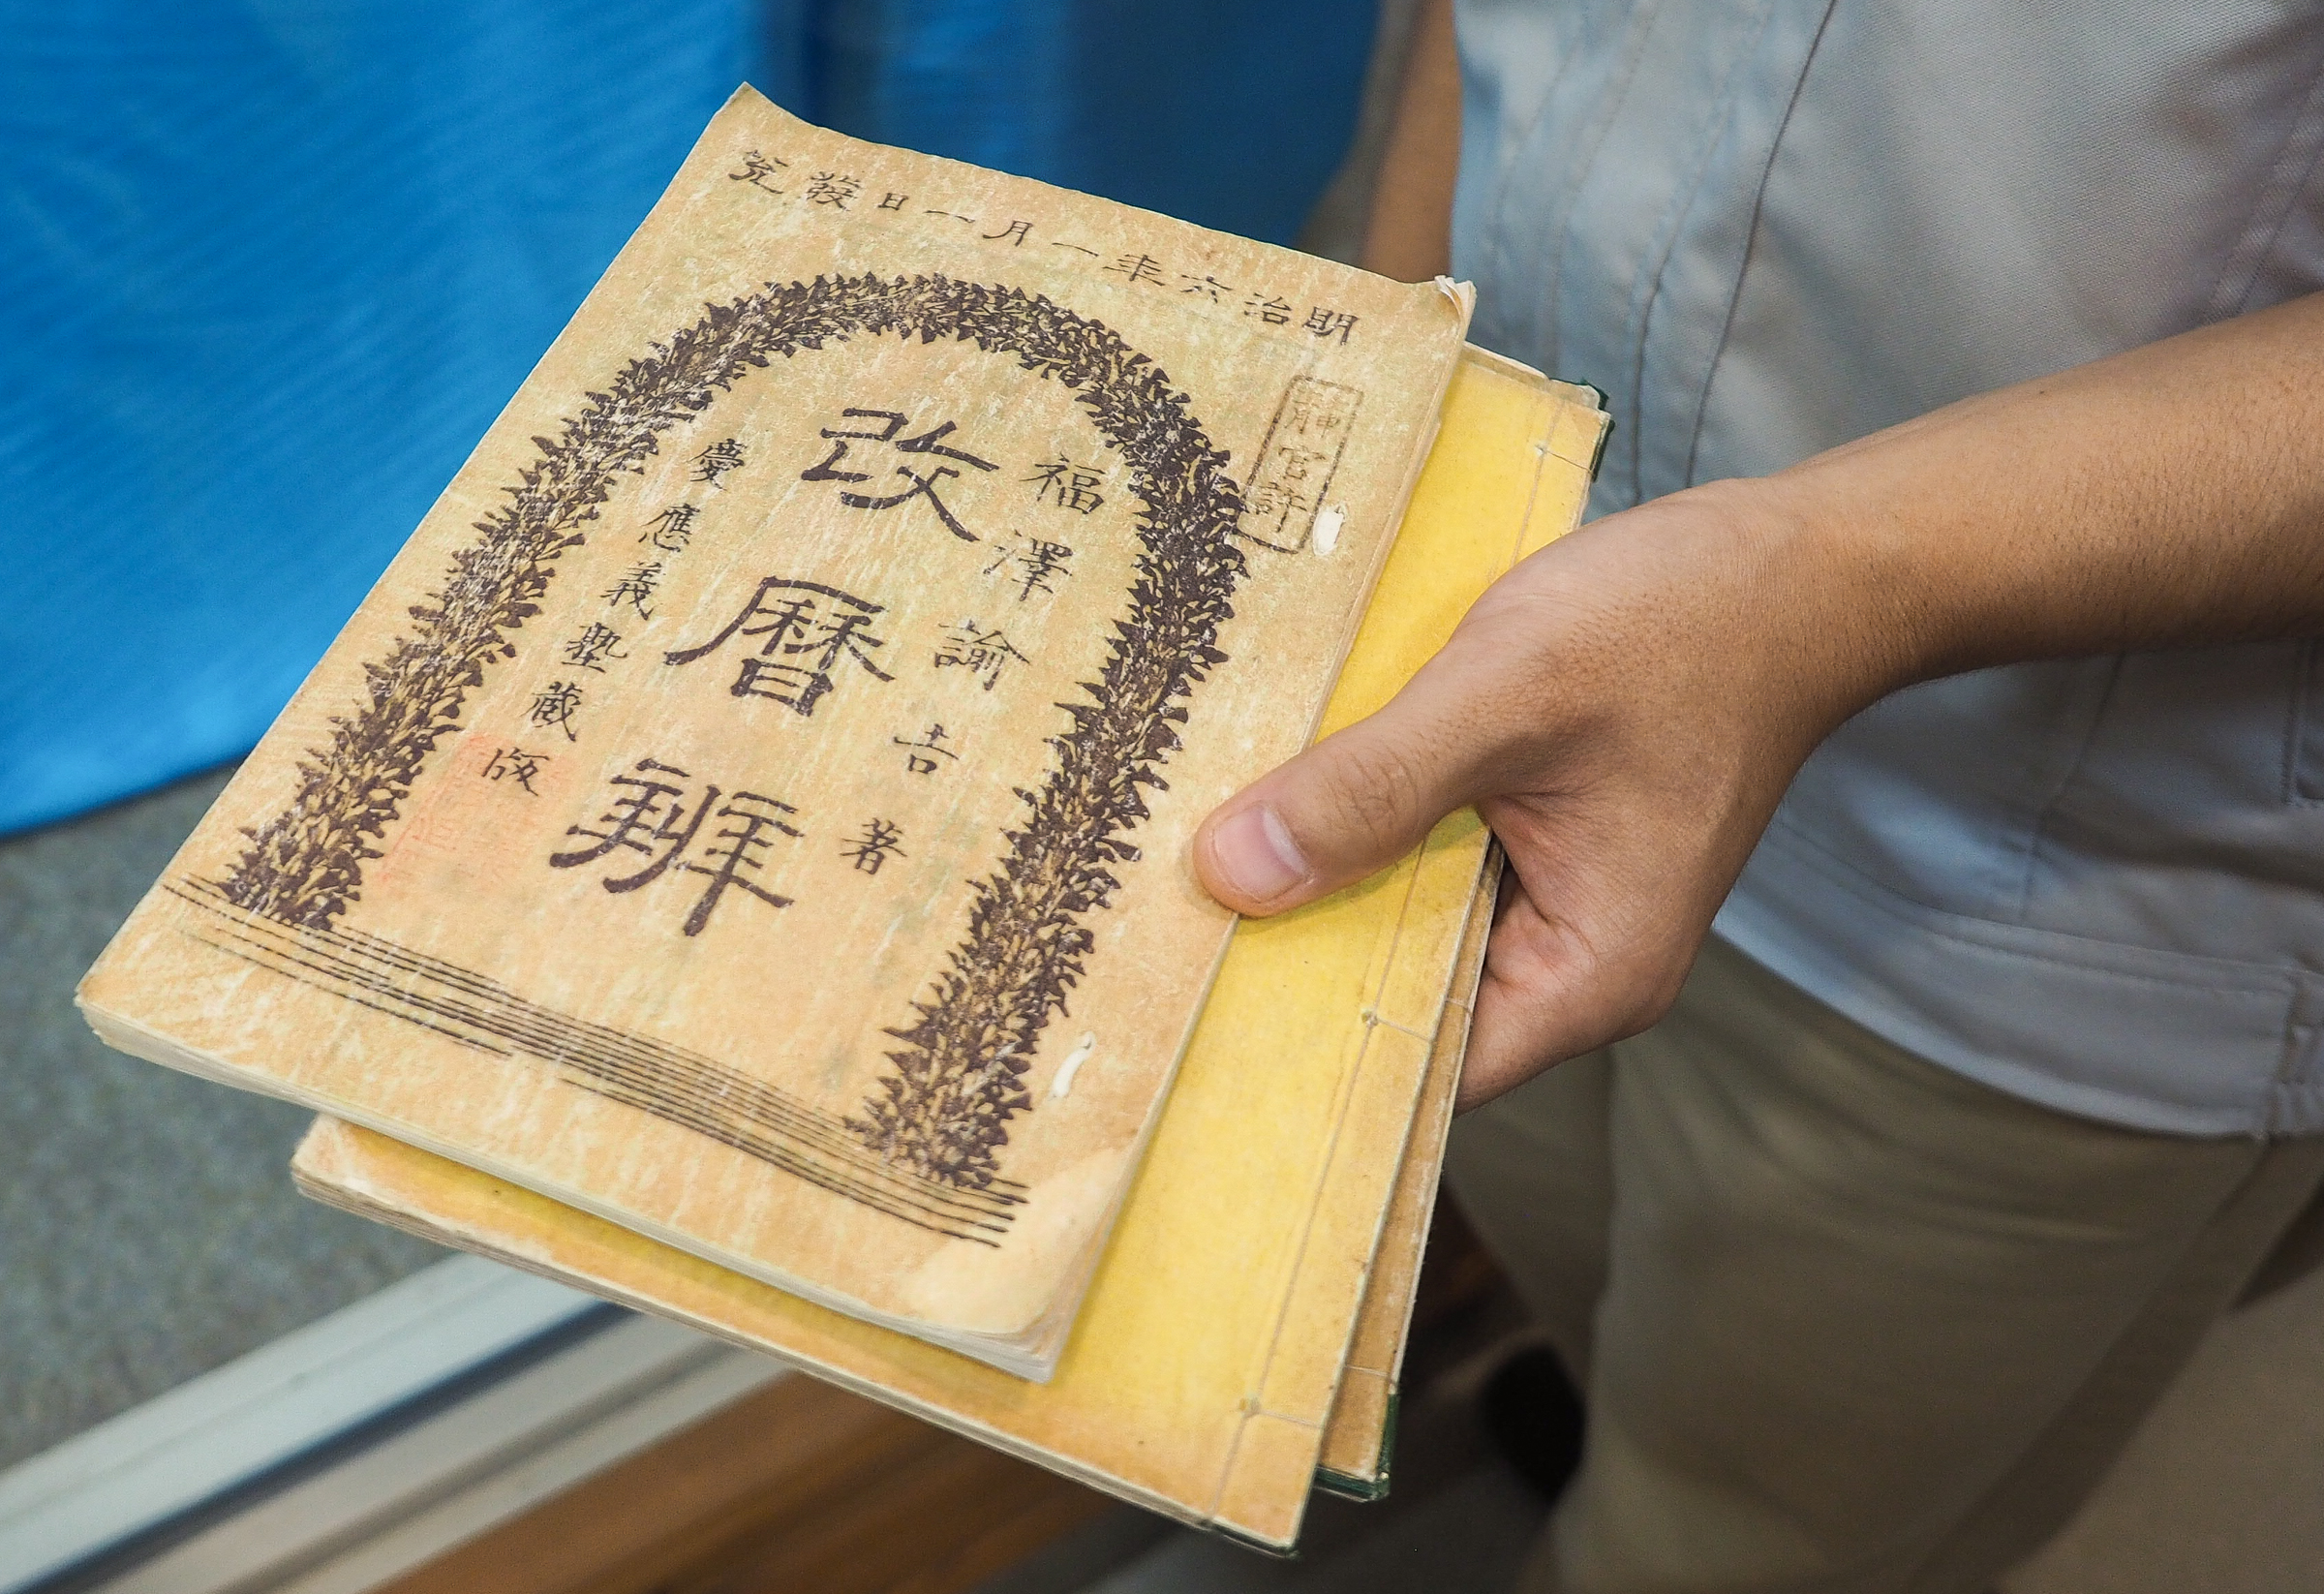 明治六年一月一日發兌
官許
福澤諭吉著
改曆辨
慶應義塾蔵版